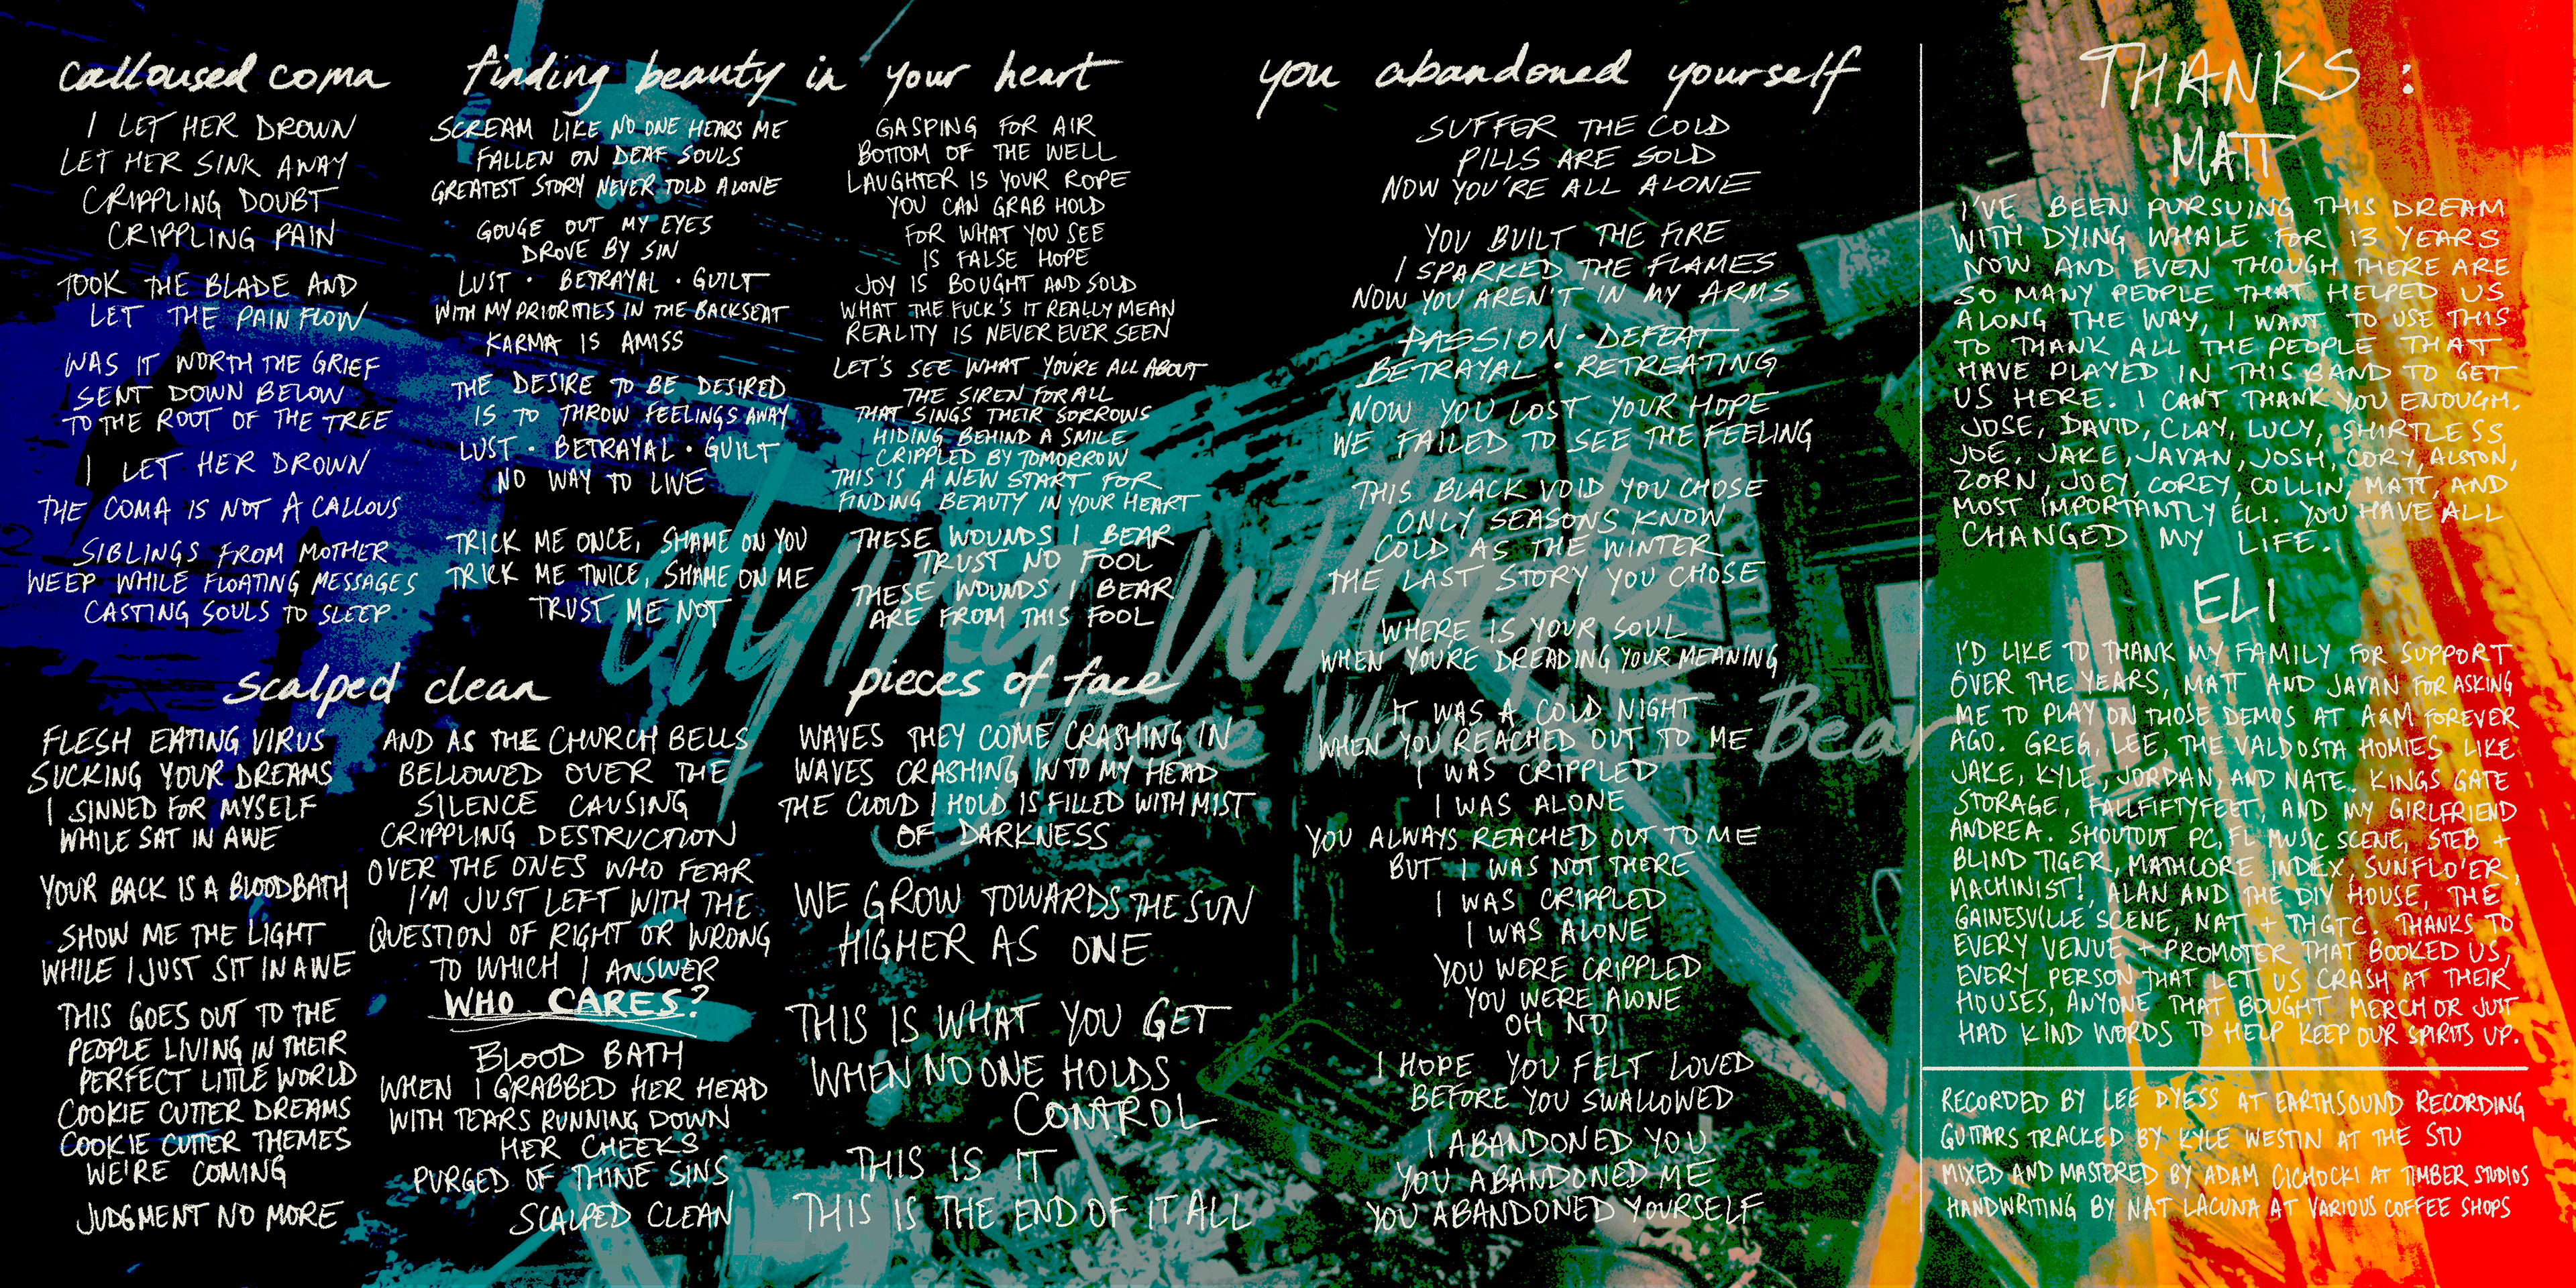 calloused coma
I LET HER DROWN
LET HER SINK AWAY
CRIPPLING DOUBT
CRIPPLING PAIN
TOOK THE BLADE AND
LET THE PAIN FLOW
WAS IT WORTH THE GRIEF
SENT DOWN BELOW
TO THE ROOT OF THE TREE
I LET HER DROWN
THE COMA IS NOT A CALLOUS
SIBLINGS FROM MOTHER
WEEP WHILE FLOATING MESSAGES
CASTING SOULS TO SLEEP
finding beauty in your heart
SCREAM LIKE NO ONE HEARS ME
FALLEN ON DEAF SOULS
GREATEST STORY NEVER TOLD ALONE
GOUGE OUT MY EYES
DROVE BY SIN
LUST • BETRAYAL • GUILT
WITH MY PRIORITIES IN THE BACKSEAT
KARMA IS AMISS
THE DESIRE TO BE DESIRED
IS TO THROW FEELINGS AWAY
LUST • BETRAYAL • GUILT
NO WAY TO LIVE
TRICK ME ONCE, SHAME ON YOU
TRICK ME TWICE, SHAME ON ME
TRUST ME NOT
GASPING FOR AIR
BOTTOM OF THE WELL
LAUGHTER IS YOUR ROPE
YOU CAN GRAB HOLD
FOR WHAT YOU SEE
IS FALSE HOPE
JOY IS BOUGHT AND SOLD
WHAT THE FUCK'S IT REALLY MEAN
REALITY IS NEVER EVER SEEN
LET'S SEE WHAT YOU'RE ALL ABOUT
THE SIREN FOR ALL
THAT SINGS THEIR SORROWS
HIDING BEHIND A SMILE
CRIPPLED BY TOMORROW
THIS IS A NEW START FOR
FINDING BEAUTY IN YOUR HEART
THESE WOUNDS I BEAR
TRUST NO FOOL
THESE WOUNDS I BEAR
ARE FROM THIS FOOL
scalped clean
FLESH EATING VIRUS
SUCKING YOUR DREAMS
I SINNED FOR MYSELF
WHILE SAT IN AWE
YOUR BACK IS A BLOODBATH
SHOW ME THE LIGHT
WHILE I JUST SIT IN AWE
THIS GOES OUT TO THE
PEOPLE LIVING IN THEIR
PERFECT LITTLE WORLD
COOKIE CUTTER DREAMS
COOKIE CUTTER THEMES
WE'RE COMING
JUDGMENT NO MORE
AND AS THE CHURCH BELLS
BELLOWED OVER THE
SILENCE CAUSING
CRIPPLING DESTRUCTION
OVER THE ONES WHO FEAR
I'M JUST LEFT WITH THE
QUESTION OF RIGHT OR WRONG
TO WHICH I ANSWER
WHO CARES?
BLOOD BATH
WHEN I GRABBED HER HEAD
WITH TEARS RUNNING DOWN
HER CHEEKS
PURGED OF THINE SINS
SCALPED CLEAN
pieces of face
WAVES THEY COME CRASHING IN
WAVES CRASHING INTO MY HEAD
THE CLOUD I HOLD IS FILLED WITH MIST
OF DARKNESS
WE GROW TOWARDS THE SUN
HIGHER AS ONE
THIS IS WHAT YOU GET
WHEN NO ONE HOLDS
CONTROL
THIS IS IT
THIS IS THE END OF IT ALL
you abandoned yourself
SUFFER THE COLD
PILLS ARE SOLD
NOW YOU'RE ALL ALONE
YOU BUILT THE FIRE
I SPARKED THE FLAMES
NOW YOU AREN'T IN MY ARMS
PASSION • DEFEAT
BETRAYAL • RETREATING
NOW YOU LOST YOUR HOPE
WE FAILED TO SEE THE FEELING
THIS BLACK VOID YOU CHOSE
ONLY SEASONS KNOW
COLD AS THE WINTER
THE LAST STORY YOU CHOSE
WHERE IS YOUR SOUL
WHEN YOU'RE DREADING YOUR MEANING
IT WAS A COLD NIGHT
WHEN YOU REACHED OUT TO ME
I WAS CRIPPLED
I WAS ALONE
YOU ALWAYS REACHED OUT TO ME
BUT I WAS NOT THERE
I WAS CRIPPLED
I WAS ALONE
YOU WERE CRIPPLED
YOU WERE ALONE
OH NO
I HOPE YOU FELT LOVED
BEFORE YOU SWALLOWED
I ABANDONED YOU
YOU ABANDONED ME
YOU ABANDONED YOURSELF
dying whale
These Wounds I Bear
THANKS:
MATT
I'VE BEEN PURSUING THIS DREAM
WITH DYING WHALE FOR 13 YEARS
NOW AND EVEN THOUGH THERE ARE
SO MANY PEOPLE THAT HELPED US
ALONG THE WAY, I WANT TO USE THIS
TO THANK ALL THE PEOPLE THAT
HAVE PLAYED IN THIS BAND TO GET
US HERE. I CANT THANK YOU ENOUGH.
JOSE, DAVID, CLAY, LUCY, SHIRTLESS
JOE, JAKE, JAVAN, JOSH, CORY, ALSTON,
ZORN, JOEY, COREY, COLLIN, MATT, AND
MOST IMPORTANTLY ELI. YOU HAVE ALL
CHANGED MY LIFE.
ELI
I'D LIKE TO THANK MY FAMILY FOR SUPPORT
OVER THE YEARS, MATT AND JAVAN FOR ASKING
ME TO PLAY ON THOSE DEMOS AT A&M FOREVER
AGO. GREG, LEE, THE VALDOSTA HOMIES LIKE
JAKE, KYLE, JORDAN, AND NATE. KINGS GATE
STORAGE, FALLFIFTYFEET, AND MY GIRLFRIEND
ANDREA. SHOUTOUT PC, FL MUSIC SCENE, STEB +
BLIND TIGER, MATHCORE INDEX, SUNFLO'ER,
MACHINIST!, ALAN AND THE DIY HOUSE, THE
GAINESVILLE SCENE, NAT + THGTC. THANKS TO
EVERY VENUE + PROMOTER THAT BOOKED US,
EVERY PERSON THAT LET US CRASH AT THEIR
HOUSES, ANYONE THAT BOUGHT MERCH OR JUST
HAD KIND WORDS TO HELP KEEP OUR SPIRITS UP.
RECORDED BY LEE DYESS AT EARTHSOUND RECORDING
GUITARS TRACKED BY KYLE WESTIN AT THE STU
MIXED AND MASTERED BY ADAM CICHOCKI AT TIMBER STUDIOS
HANDWRITING BY NAT LACUNA AT VARIOUS COFFEE SHOPS